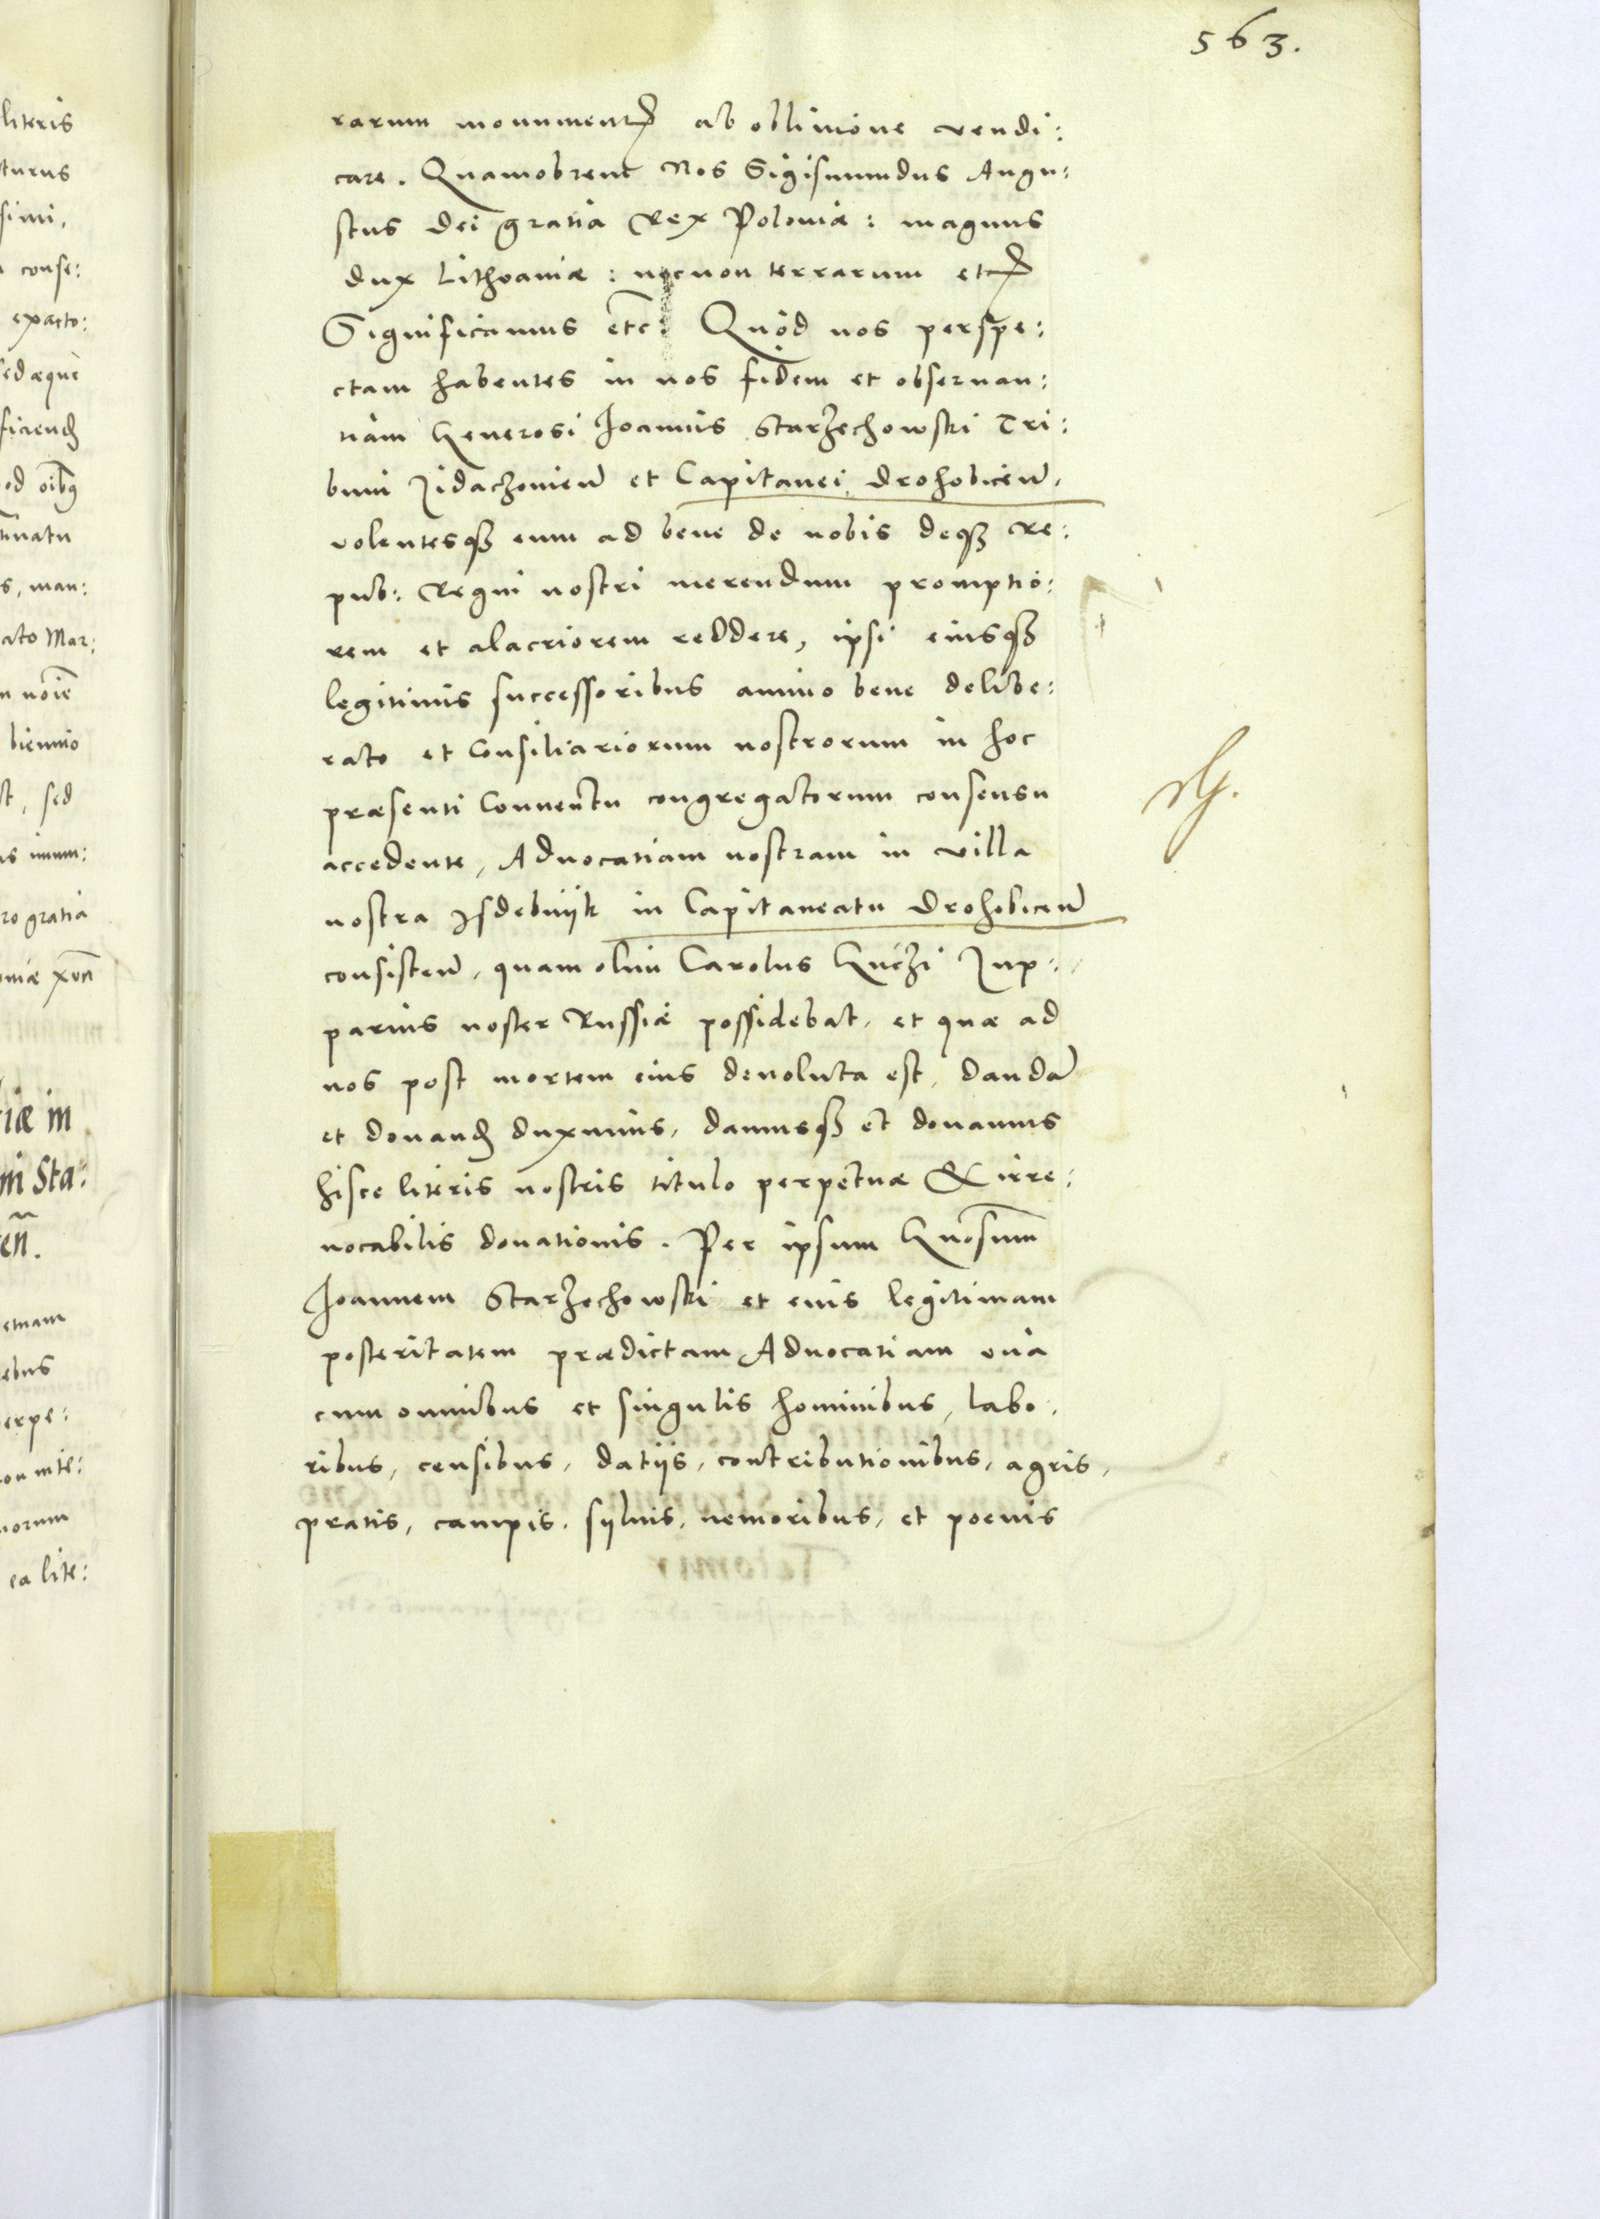 563.
rarum monumentis ab obliuione vendi:
care. Quamobrem Nos Sigismundus Augu:
stus dei gratia Rex Poloniæ: magnus
dux Lithvaniæ: necnon terrarum etc
Significamus etc: Quòd nos perspe:
ctam habentes in nos fidem et obseruan:
tiam Generosi Joannis Starzechowski Tri:
buni Zidaczouien̄ et Capitanei drohobicen̄,
volentesqȝ eum ad bene de nobis deqȝ Re:
pub: Regni nostri merendum promptio:
rem et alacriorem reddere, ipsi eiusqȝ
legitimis successoribus animo bene delibe:
rato et Consiliariorum nostrorum in hoc
præsenti Conuentu congregatorum consensu
accedente, Aduocatiam nostram in villa
nostra Isdebnijk in Capitaneatu drohobicen̄
consisten̄, quam olim Carolus Guczi Zup:
parius noster Russiæ possidebat, et quæ ad
nos post mortem eius deuoluta est, dandā
et donand duximus, damusqȝ et donamus
hisce literis nostris titulo perpetuæ & irre:
uocabilis donationis. Per ipsum Gnosum
Joannem Starzechowski et eius legitimam
posteritatem prædictam Aduocatiam vnà
cum omnibus et singulis hominibus, labo,
ribus, censibus, datijs, contributionibus, agris,
pratis, campis, syluis, nemoribus, et poenis
literis
conse:
expecto:
sedæque
s, man:
ato Mar:
biennio
sed
pro gratia
iæ in
ni Sta:
en̄.
ebus
erpe:
ea lite: